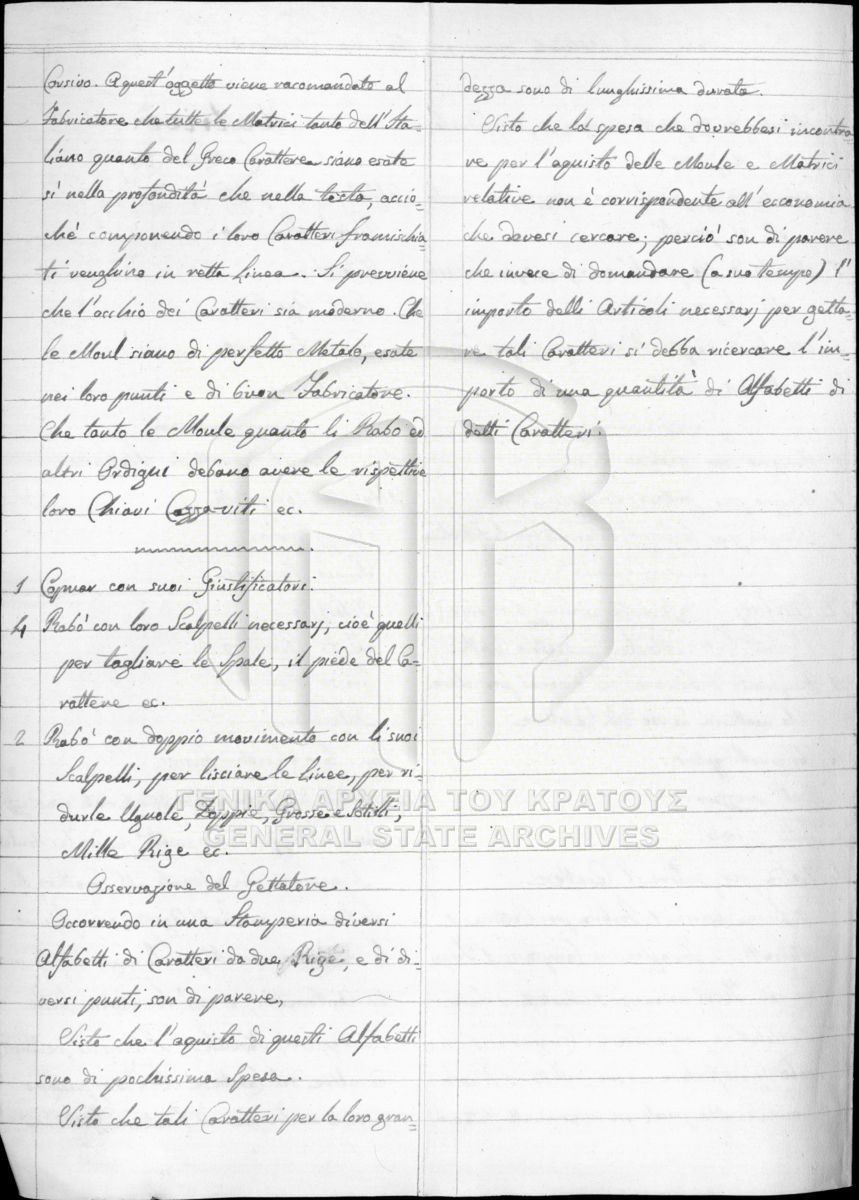 Corsivo. A quest'oggetto viene racomandato al
Fabricatore che tutte le Matrici tanto dell'Ita=
liano quanto del Greco Carattere siano esate
si nella profondità che nella testa, accio=
ché componendo i loro Caratteri framischia=
ti venghino in retta Linea. Si previene
che l'occhio dei Caratteri sia moderno. Che
le Moul siano di perfetto Metalo, esate
nei loro punti e di buon Fabricatore.
Che tanto le Moule quanto li Rabo ed
altri Ordigni debano avere le rispettive
loro Chiavi Cazza-viti ec.
1 con suoi Giustificatori.
4 Rabo' con loro Scalpelli necessarj, cioé quelli
per tagliare le Spale, il piede del Ca=
rattere ec.
2 Rabo' con doppio movimento con li suoi
Scalpelli, per lisciare le Linee, per ri=
durle Ugnole, Doppie, Grosse e Sotilli,
Mille Rige ec.
Osservazione del Gettatore.
Occorrendo in una Stamperia diversi
Alfabetti di Caratteri da due Rige, e di di=
versi punti, son di parere,
Visto che l'aquisto di questi Alfabetti
sono di pochissima Spesa.
Visto che tali Caratteri per la loro gran=
dezza sono di lunghissima durata.
Visto che la spesa che dovrebbesi incontra=
re per l'aquisto delle Moule e Matrici
relative non é corrispondente all'economia
che devesi cercare; perció son di parere
che invece di domandare (a suo tempo) l'
importo delli Articoli necessarj per getta=
re tali Caratteri si debba ricercare l'im=
porto di una quantità di Alfabetti di
detti Caratteri.
ΓΕΝΙΚΑ ΑΡΧΕΙΑ ΤΟΥ ΚΡΑΤΟΥΣ
GENERAL STATE ARCHIVES